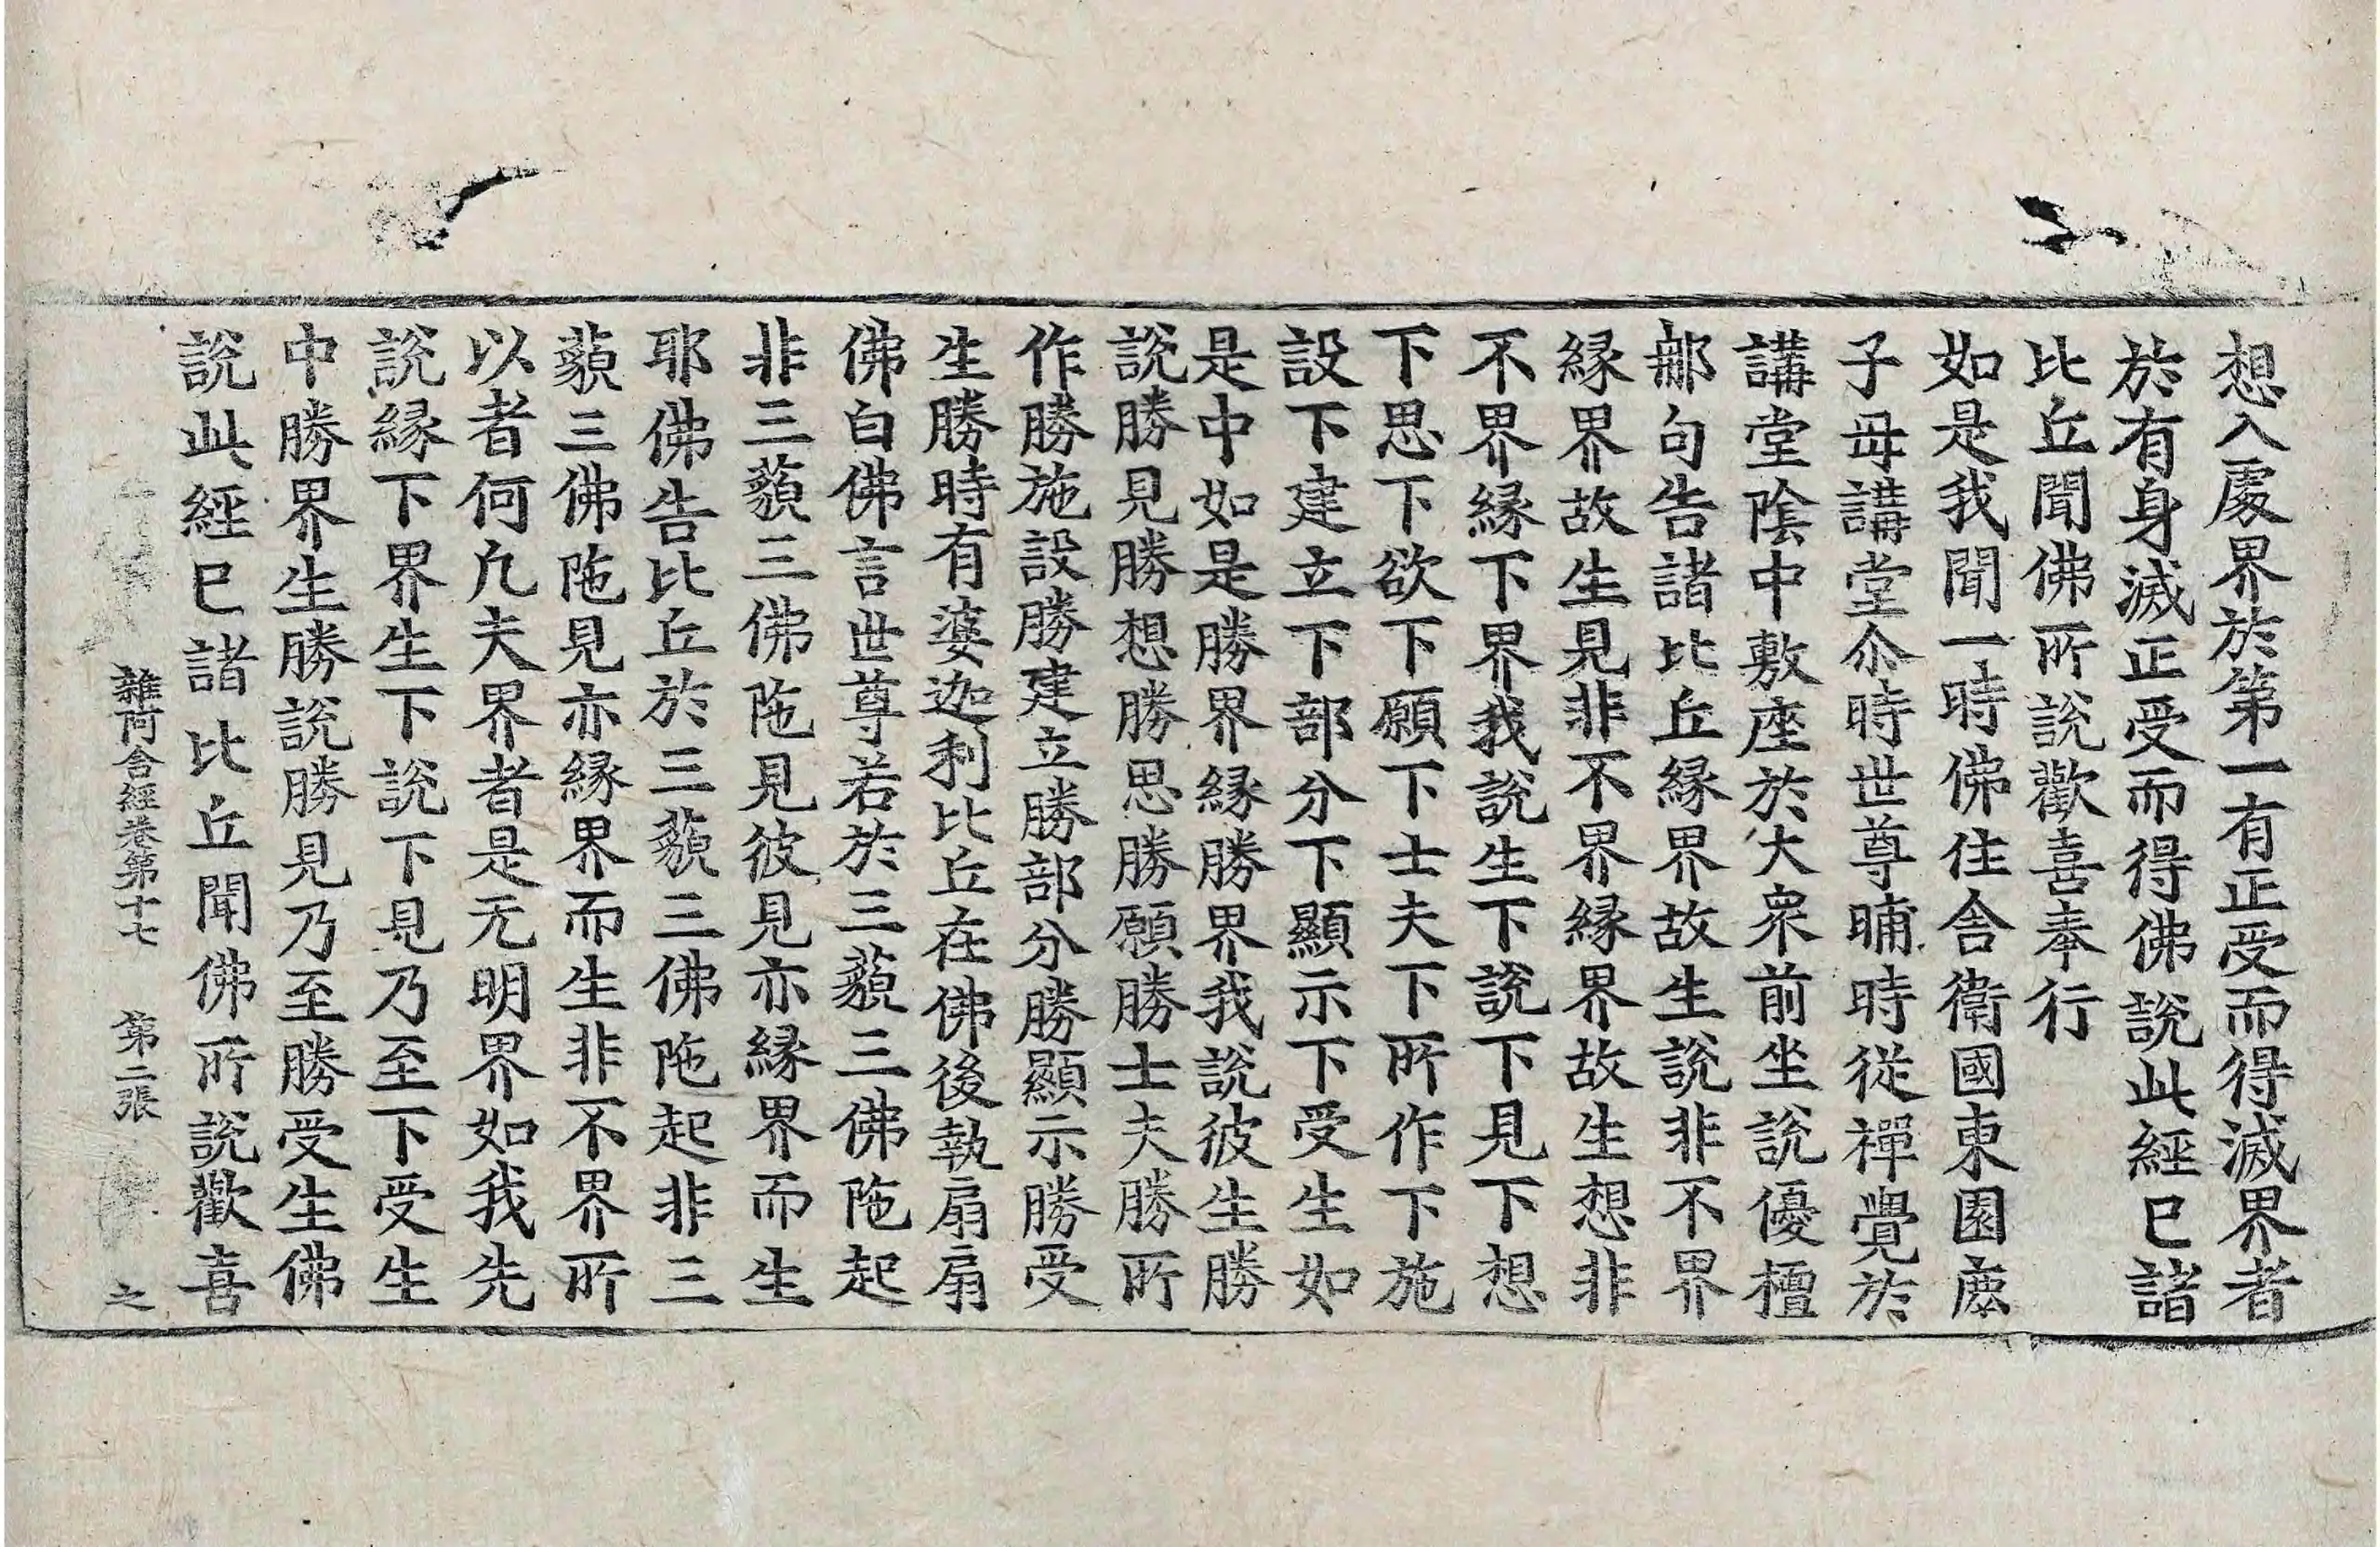 想入處界於第一有正受而得滅界者
於有身滅正受而得佛說此經已諸
比丘聞佛所說歡喜奉行
如是我聞一時佛住舍衛國東園鹿
子母講堂尒時世尊晡時從禪覺於
講堂陰中敷座於大衆前坐說優檀
那句告諸比丘緣界故生說非不界
緣界故生見非不界緣界故生想非
不界緣下界我說生下說下見下想
下思下欲下願下士夫下所作下施
設下建立下部分下顯示下受生如
是中如是勝界緣勝界我說彼生勝
說勝見勝想勝思勝願勝士夫勝所
作勝施設勝建立勝部分勝顯示勝受
生勝時有婆迦利比丘在佛後執扇扇
佛白佛言世尊若於三藐三佛陁起
非三藐三佛陁見彼見亦緣界而生
耶佛告比丘於三藐三佛陁起非三
藐三佛陁見亦緣界而生非不界所
以者何凢夫界者是无明界如我先
說緣下界生下說下見乃至下受生
中勝界生勝說勝見乃至勝受生佛
說此經已諸比丘聞佛所說歡喜
雜阿含經卷第十七 第二張 之